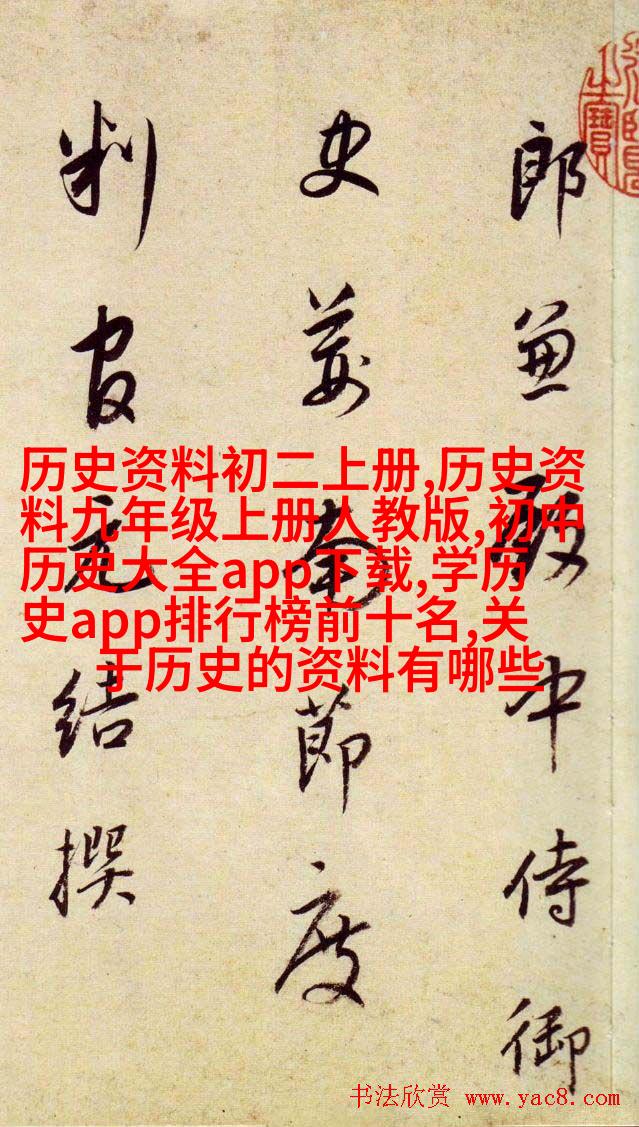 郎兼殿中侍御
史荊南節度
判官元結撰
历史资料初二上册,历史资
料九年级上册人教版,初中
历史大全app下载,学历
史app排行榜前十名,关
于历史的资料有哪些
书法欣赏 www.yac8.com